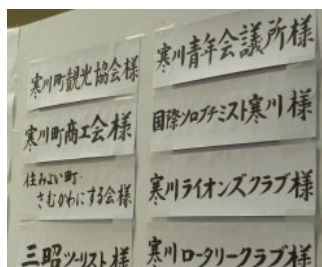 寒川町観光協会様
寒川町商工会様
住みよい町・
さむかわにする会様
三昭ツーリスト様
寒川青年会議所様
国際ソロプチミスト寒川様
寒川ライオンズクラブ様
寒川ロータリークラブ様